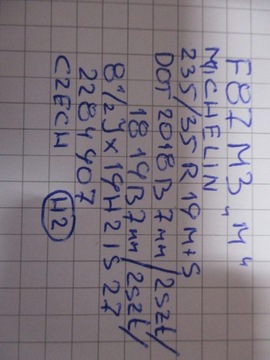 F87 M3 "M"
MICHELIN
235/35 R 19 M+S
DOT 2018B 7mm /2szt/
1819B 7mm /2szt/
8 1/2 J x 19 H2 IS 27
2284907
CZECH H2